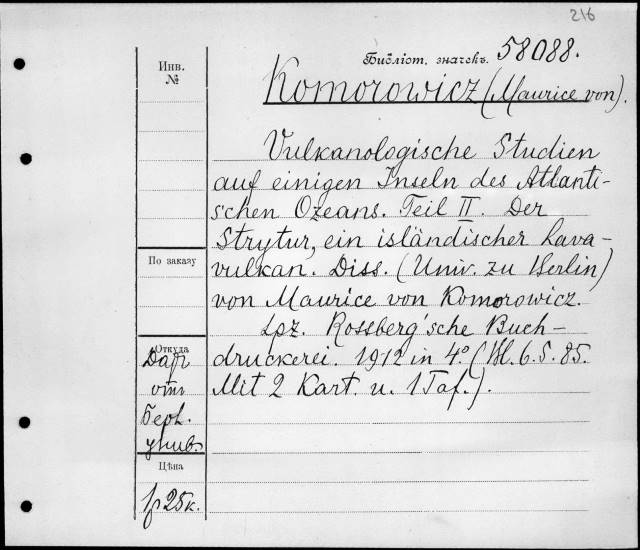 216
Библіот. значекъ. 58088.
Инв.
№
Komorowicz (Maurice von).
Vulkanologische Studien
auf einigen Inseln des Atlanti-
schen Ozeans. Teil II. Der
Strytur, ein isländischer Lava-
По заказу
vulkan. Diss. (Univ. zu Berlin)
von Maurice von Komorowicz.
Lpz. Rossberg'sche Buch-
Откуда
Даръ
druckerei. 1912 in 4º. (Bl. 6. S. 85.
отъ
Mit 2 Kart. u. 1 Taf.).
Берл.
унив.
Цѣна
1р 25к.